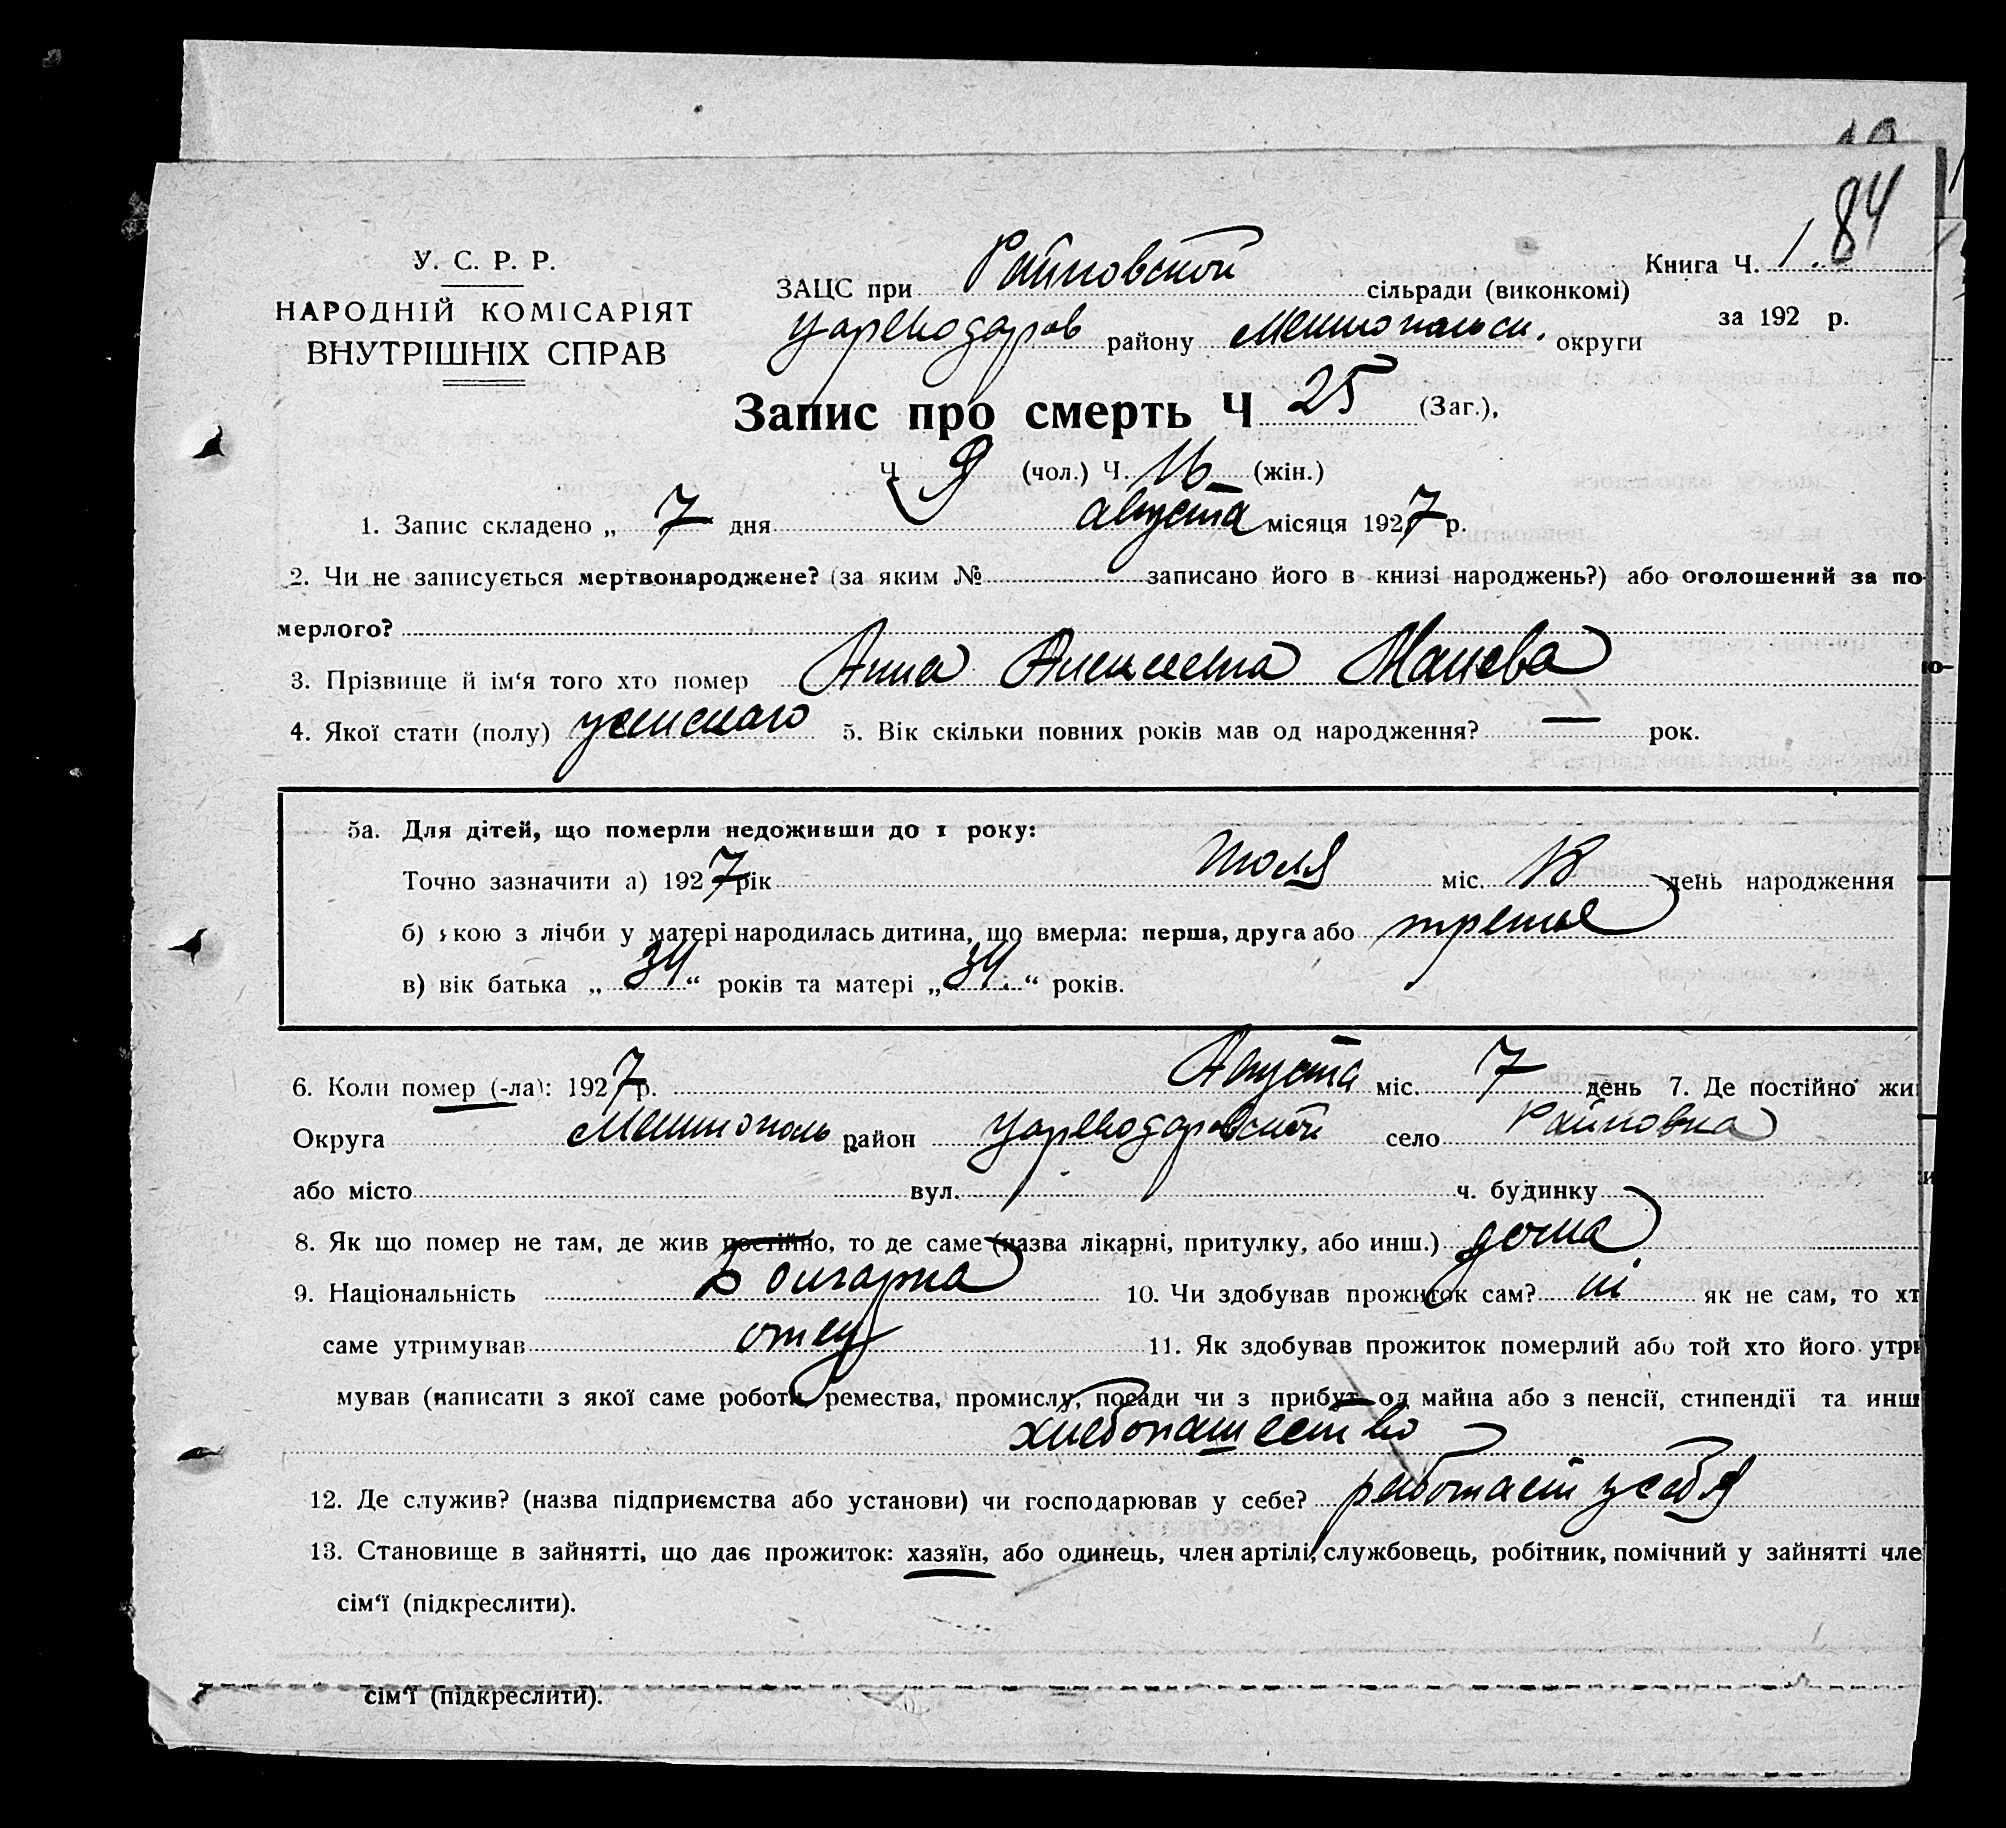 84
У. С. Р. Р.
НАРОДНІЙ КОМІСАРІЯТ
ВНУТРІШНІХ СПРАВ
Книга Ч. 1.
за 192 р.
ЗАЦС при Райновской сільради (виконкомі)
Цареводаров району Мелитопольск. округи
Запис про смерть Ч 25 (Заг.),
Ч 9 (чол.) Ч. 16 (жін.)
1. Запис складено „ 7 дня августа місяця 1927 р.
2. Чи не записується мертвонароджене? (за яким № записано його в книзі народжень?) або оголошений за по-
мерлого?
3. Прізвище й ім'я того хто помер Анна Алексеевна
4. Якої стати (полу) женскаго 5. Вік скільки повних років мав од народження? — рок.
5а. Для дітей, що померли недоживши до 1 року:
Точно зазначити а) 1927 рік Июля міс. 18 день народження
б) якою з лічби у матері народилась дитина, що вмерла: перша, друга або третье
в) вік батька „ 34 “ років та матері „ 34 “ років.
6. Коли помер (-ла): 1927 р. Августа міс. 7 день 7. Де постійно жи
Округа Мелитополь район Цареводаровской село Райновка
або місто вул. ч. будинку
8. Як що помер не там, де жив постійно, то де саме (назва лікарні, притулку, або инш.) дома
9. Національність Болгарка 10. Чи здобував прожиток сам? ні як не сам, то хт
саме утримував отец 11. Як здобував прожиток померлий або той хто його утри
мував (написати з якої саме роботи, ремества, промислу, посади чи з прибут. од майна або з пенсії, стипендії та инш
хлебопашество
12. Де служив? (назва підприємства або установи) чи господарював у себе? работает у себя
13. Становище в зайнятті, що дає прожиток: хазяїн, або одинець, член артілі, службовець, робітник, помічний у зайнятті чле
сім'ї (підкреслити).
сім'ї (підкреслити).